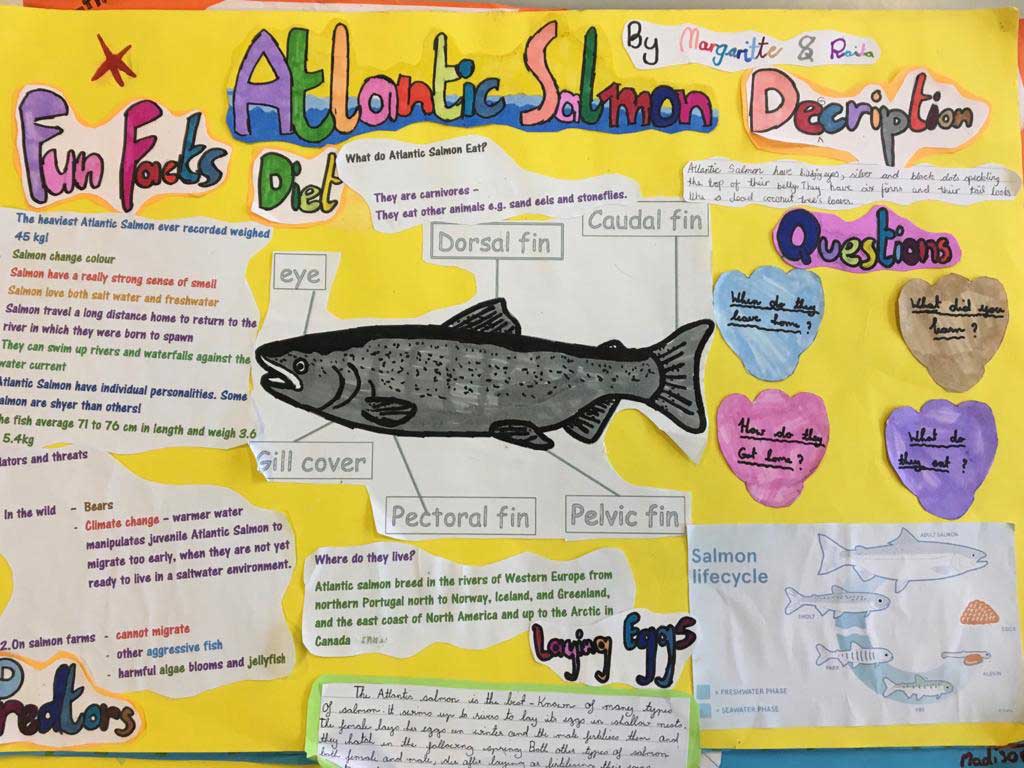 Atlantic Salmon
By Margaritte & Raila
Fun Facts
The heaviest Atlantic Salmon ever recorded weighed
45 kg!
Salmon change colour
Salmon have a really strong sense of smell
Salmon love both salt water and freshwater
Salmon travel a long distance home to return to the
river in which they were born to spawn
They can swim up rivers and waterfalls against the
water current
Atlantic Salmon have individual personalities. Some
salmon are shyer than others!
he fish average 71 to 76 cm in length and weigh 3.6
5.4kg
Diet
What do Atlantic Salmon Eat?
They are carnivores –
They eat other animals e.g. sand eels and stoneflies.
Decription
s
Atlantic Salmon have eyes, silver and black dots speckling
the top of their belly. They have six finns and their tail looks
like a dead coconut tree's leaves.
eye
Dorsal fin
Caudal fin
Gill cover
Pectoral fin
Pelvic fin
Questions
When do they
leave home?
What did you
learn?
How do they
Get home?
What do
they eat?
ators and threats
In the wild - Bears
- Climate change – warmer water
manipulates juvenile Atlantic Salmon to
migrate too early, when they are not yet
ready to live in a saltwater environment.
2.On salmon farms - cannot migrate
- other aggressive fish
- harmful algae blooms and jellyfish
Predtors
Where do they live?
Atlantic salmon breed in the rivers of Western Europe from
northern Portugal north to Norway, Iceland, and Greenland,
and the east coast of North America and up to the Arctic in
Canada
Laying Eggs
The Atlantic salmon is the best-known of many types
of salmon. It swims up to rivers to lay its eggs in shallow nests.
The female lays her eggs in winter and the male fertilises them and
they hatch in the following spring. Both other types of salmon
both female and male, die after laying or fertilising their eggs
Salmon
lifecycle
ADULT SALMON
SMOLT
EGGS
PARR
ALEVIN
FRY
= FRESHWATER PHASE
= SEAWATER PHASE
Madison